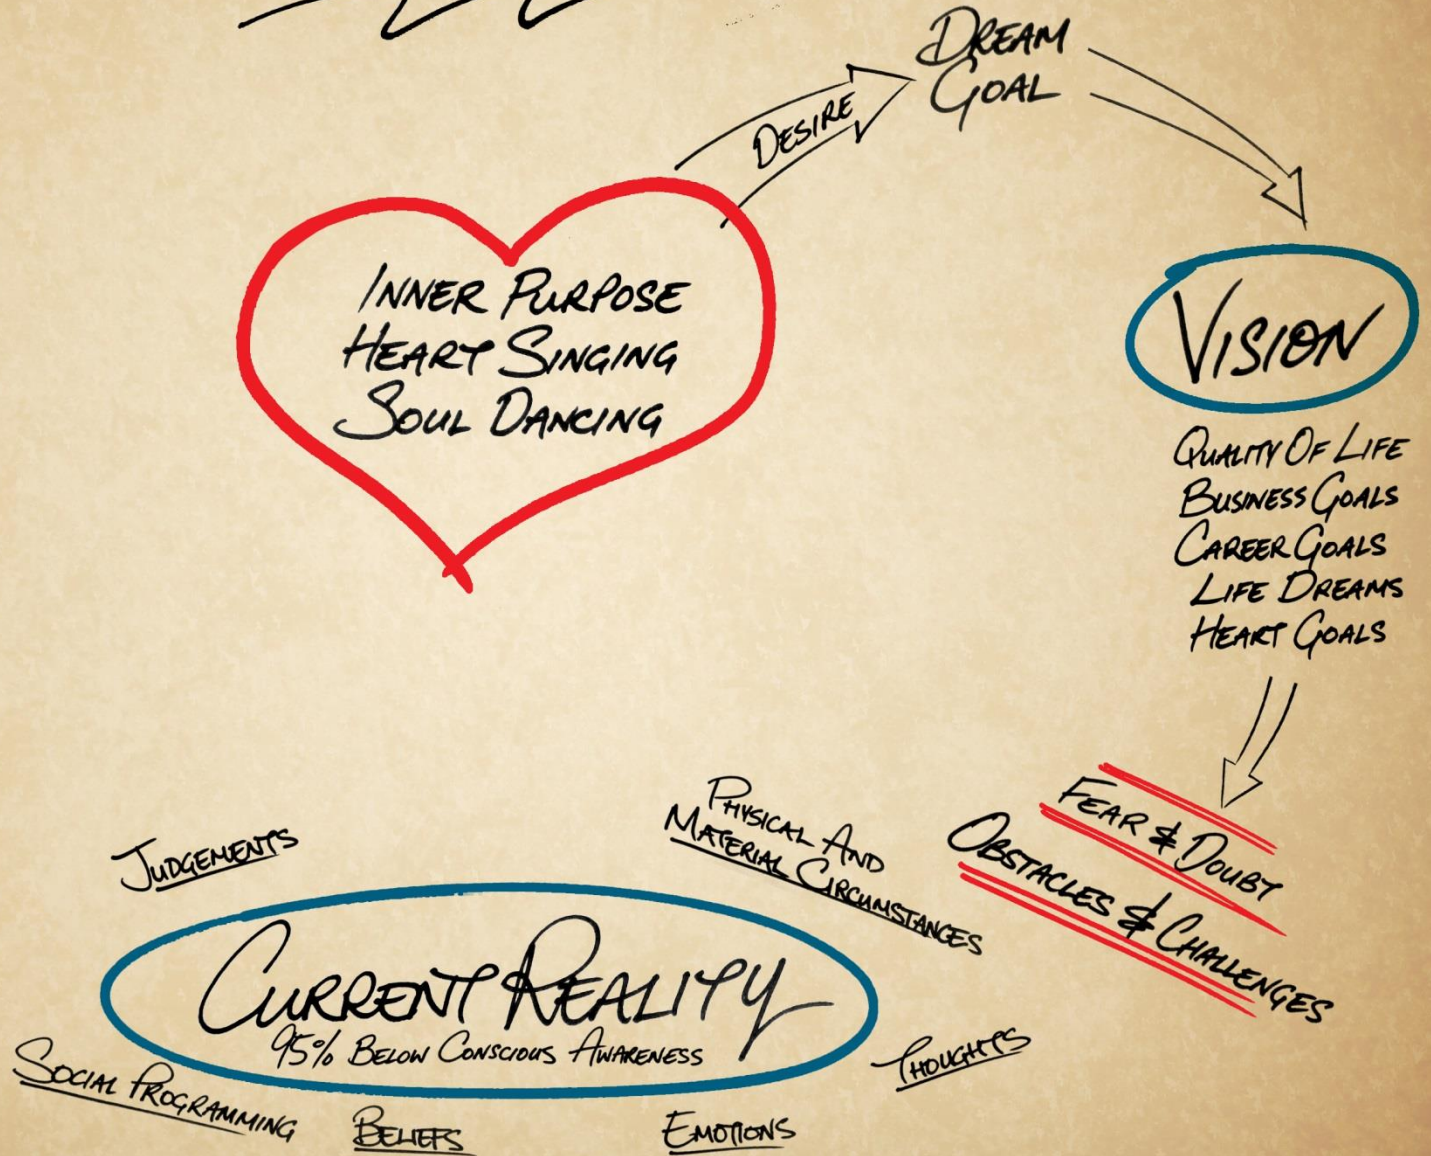 DREAM
GOAL
DESIRE
INNER PURPOSE
HEART SINGING
SOUL DANCING
VISION
QUALITY OF LIFE
BUSINESS GOALS
CAREER GOALS
LIFE DREAMS
HEART GOALS
FEAR & DOUBT
OBSTACLES & CHALLENGES
PHYSICAL AND
MATERIAL CIRCUMSTANCES
JUDGEMENTS
CURRENT REALITY
95% BELOW CONSCIOUS AWARENESS
THOUGHTS
SOCIAL PROGRAMMING
BELIEFS
EMOTIONS